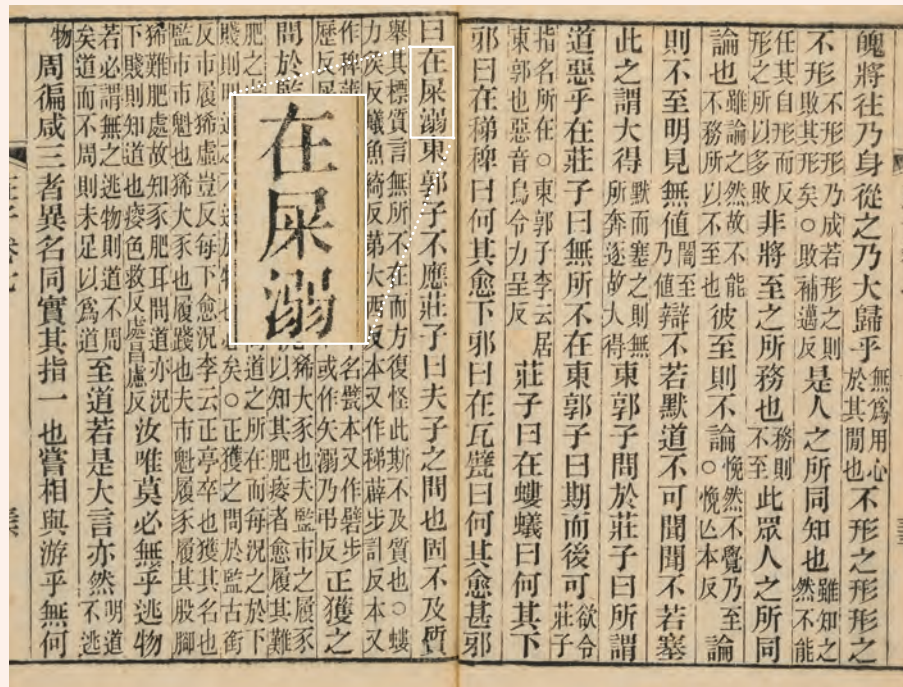 魄將往乃身從之乃大歸乎無爲用心於其間也不形之形形之
不形不形形乃成若形之則敗其形矣○敗補邁反是人之所同知也雖知之然不能
任其自形而反形之所以多敗非將至之所務也務則不至此眾人之所同
論也雖論之然故不能不務所以不至也彼至則不論悗然不覺乃至○悗亾本反論
則不至明見無値闇至乃値辯不若默道不可聞聞不若塞
此之謂大得默而塞之則無所奔逐故大得東郭子問於莊子曰所謂
道惡乎在莊子曰無所不在東郭子曰期而後可欲令莊子
指名所在○東郭子李云居東郭也惡音烏令力呈反莊子曰在螻蟻曰何其下
邪曰在稊稗曰何其愈下邪曰在瓦甓曰何其愈甚邪
曰在屎溺東郭子不應莊子曰夫子之問也固不及質
舉其標質言無所不在而方復怪此斯不及質也○螻力侯反蟻魚綺反第大西反本又作稊薜步計反本又
作稗名甓本又作礕步歷反屎或作矢溺乃弔反正獲之
問於監狶大豕也夫監市之履豕以知其肥瘦者愈履其難
肥之道之所在而每況之於下賤則明矣○正獲之問於監古銜
反市履狶虛豈反每下愈況李云正亭卒也獲其名也監市市魁也狶大豕也履踐也夫市魁履豕履其股腳
狶難肥處故知豕肥耳問道亦況下賤則知道也瘦色救反處昌慮反汝唯莫必無乎逃物
若必謂無之逃物則道不周矣道而不周則未足以爲道至道若是大言亦然明道不逃
物周徧咸三者異名同實其指一也嘗相與游乎無何
在屎溺